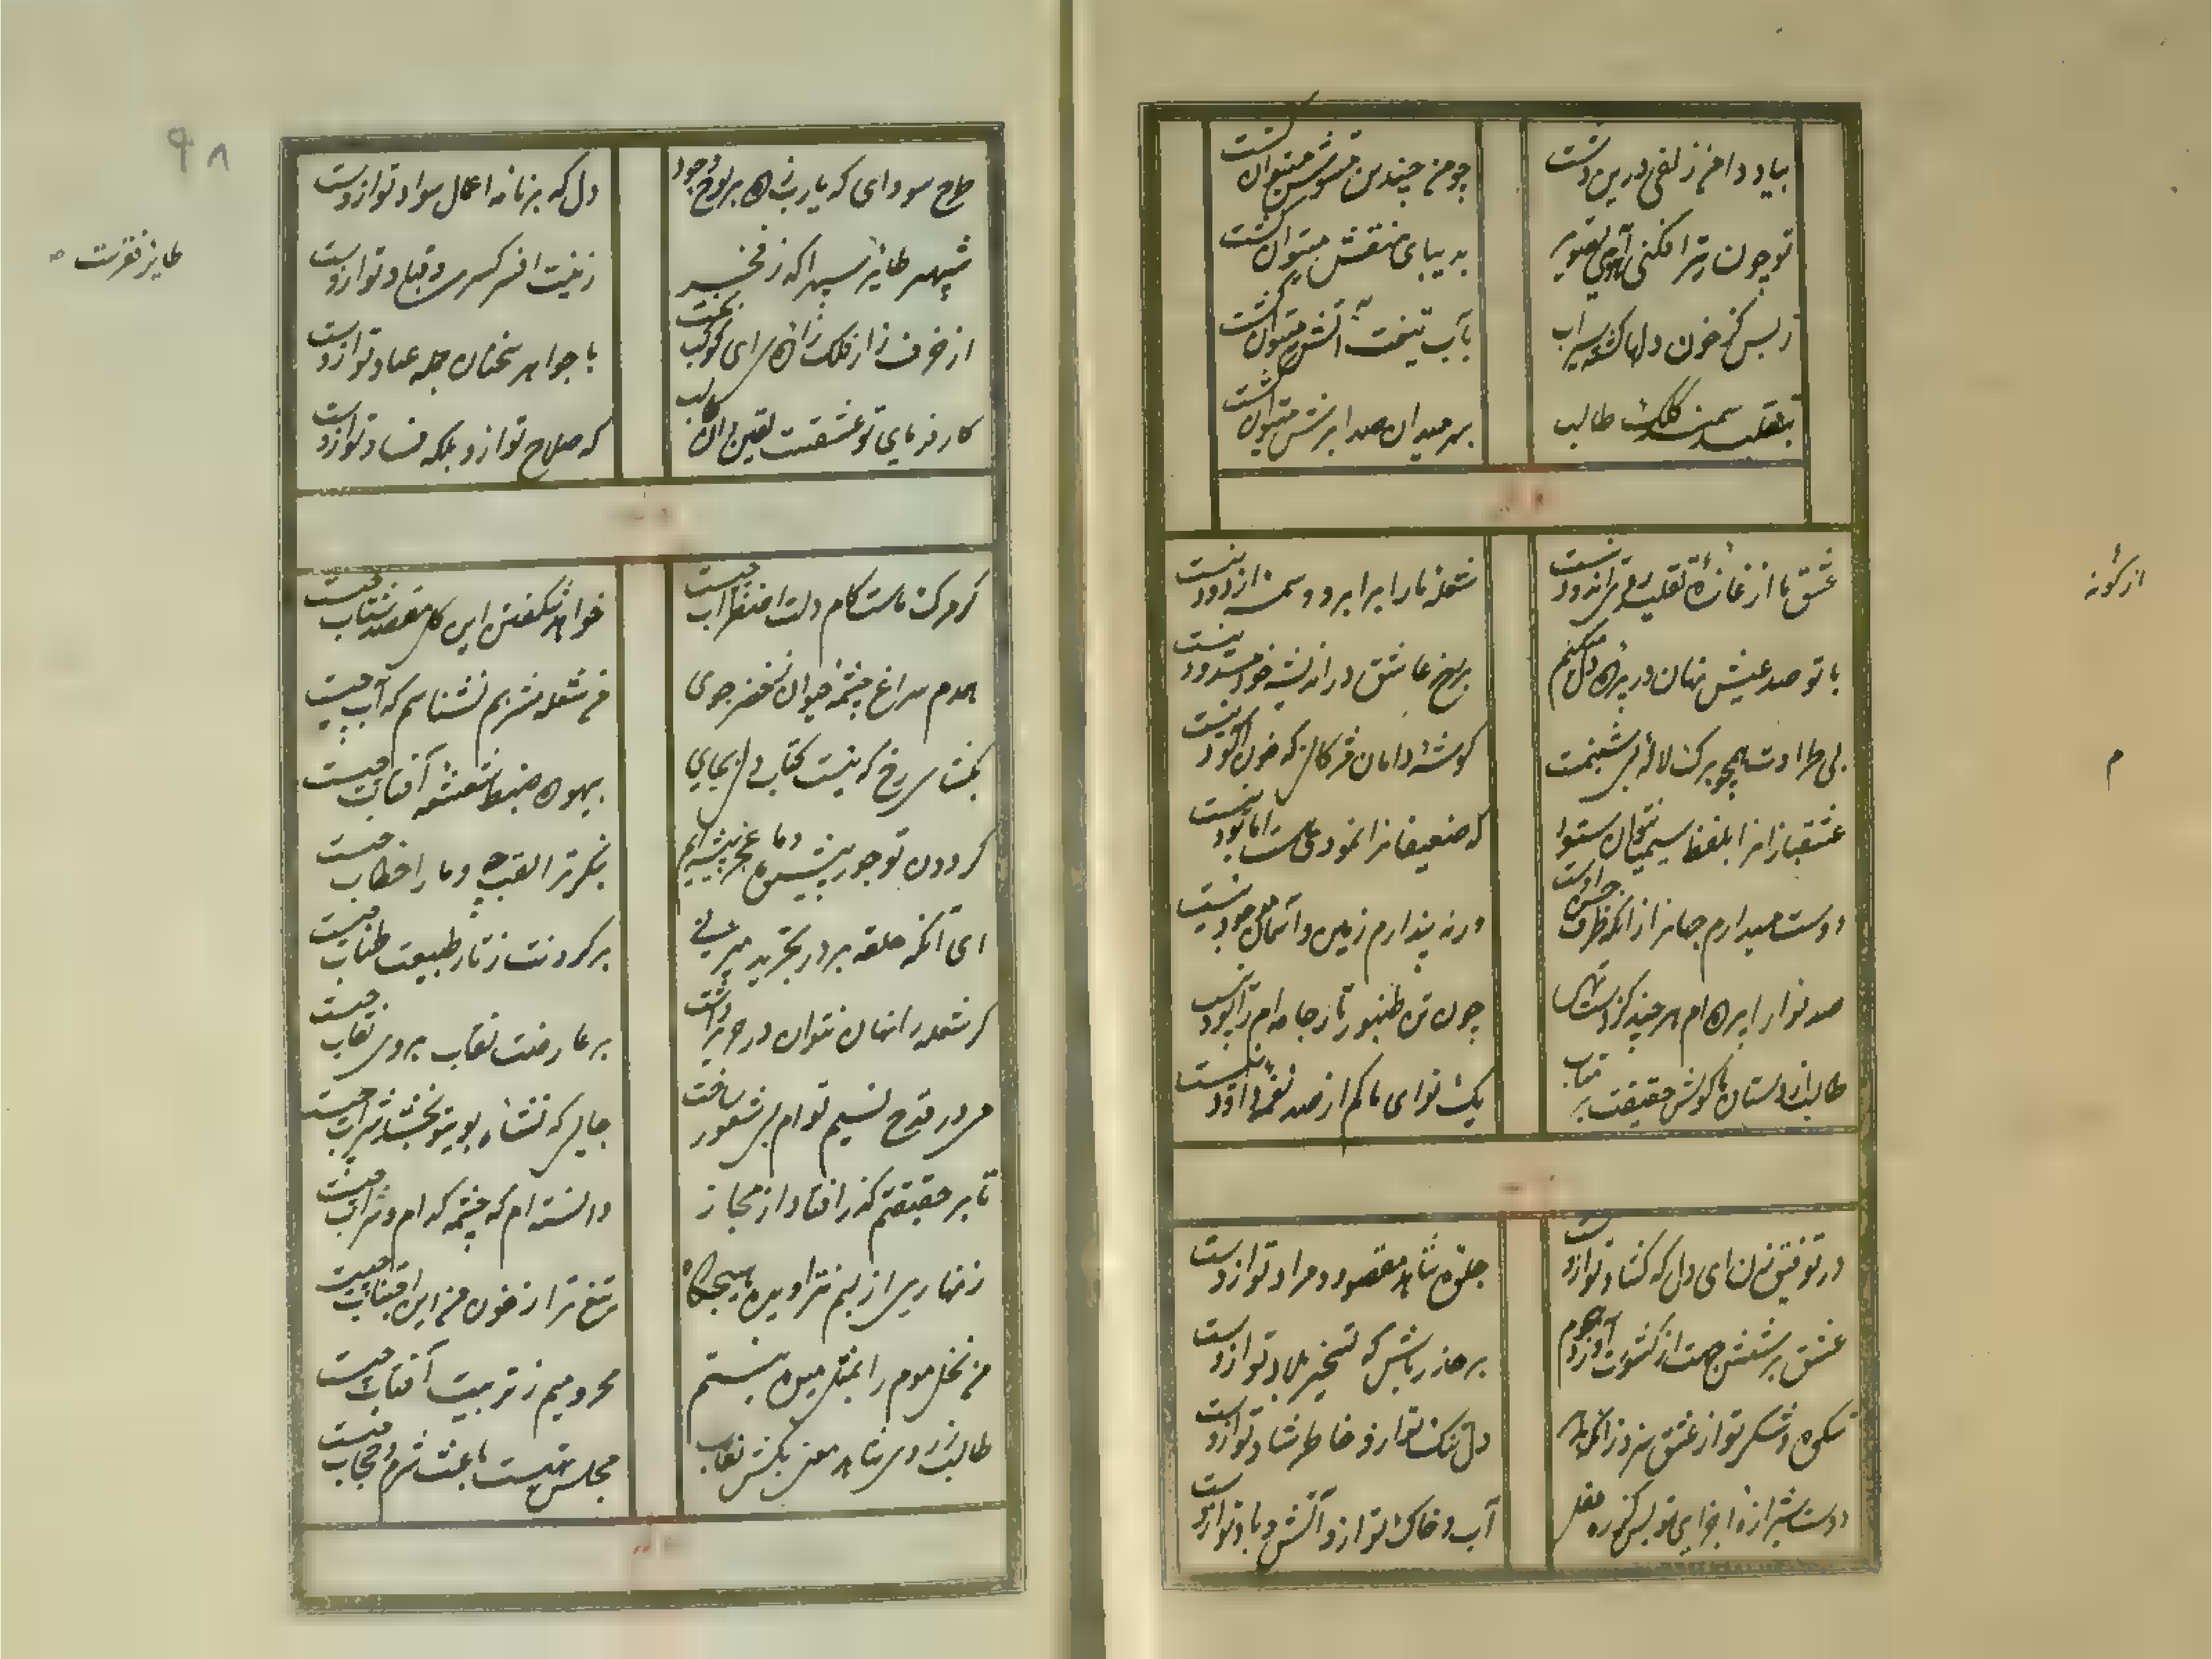 بیاد دامن زلفی درین دشت
چو من چندین مشوش میتوان گشت
تو چون تیر افکنی آهوی تصویر
بدیبای منقش میتوان گشت
ز بس کز خون دلها گشته سیراب
بآب تیغت آتش میتوان گشت
سمند کلک طالب
بهر میدان صد ابرش میتوان گشت
عشق ما از غازهٔ تقلید
شعله ما را برابر و وسمه از دود نیست
با تو صد عیش نهان در پردهٔ دل میکنم
بر رخ عاشق در اندیشه خود مسدود نیست
بی طراوت همچو برگ لالهٔ بی شبنمست
گوشهٔ دامان مژگانی که خون آلود نیست
عشقبازانرا
که ضعیفانرا نمود هست اما بود نیست
دوست میدارم جهانرا زانکه ظرف حسن اوست
ورنه پندارم زمین و آسمان موجود نیست
صد نوا را پرده ام هر چند کز دست تهی
چون تن طنبور تار جامه ام را پود نیست
طالب از دستان ما گوش حقیقت بر متاب
یک نوای ما کم از صد نغمهٔ داود نیست
در توفیق زن ای دل که گشاد تو ازوست
جلوهٔ شاهد مقصود و مراد تو ازوست
عشق بر شش جهت از کشورت آورد هجوم
بر حذر باش که تسخیر بلاد تو ازوست
شکوه و شکر تو از عشق سزد زانکه
دل تنگ تو ازو خاطر شاد تو ازوست
دوست شیرازهٔ اجزای تو بس کز ره مهر
آب و خاک تو ازو آتش و باد تو ازوست
از گونه
م
۹۸
طرح سودای که یارب زده بر لوح وجود
دل که برنامه اعمال سواد تو ازوست
شهپر طایر سپهرا که ز فخر
زینت افسر کسری و قباد تو ازوست
کوکب بخت
با جواهر سخنان جمله عناد تو ازوست
کار فرمای تو عشقست یقین دان طالب
که صلاح تو ازو بلکه فساد تو ازوست
گر مرگ ماست کام دلت اضطراب چیست
خواهد شکفتن این گل مقصد شتاب چیست
همدم سراغ چشمهٔ حیوان ز خضر جوی
من شعله مشربم نشناسم که آب چیست
بیهوده ضبط شعشعه آفتاب چیست
گردون تو جور پیشه و ما عجز پیشه ایم
بنگر ترا لقب چه و ما را خطاب چیست
ای آنکه حلقه بر در تجرید میزنی
بر گردنت ز تار طبیعت طناب چیست
گر شعله را نهان نتوان در حریر داشت
بر عارضت نقاب بروی نقاب چیست
می در قدح نسیم تو ام بی شعور ساخت
جایی که نشاه بوی تو بخشد شراب چیست
تا بر حقیقتم گذر افتاد از مجاز
دانسته ام که چشمه کدام و شراب چیست
زنهار من از بیم نتراویده هیچگاه
تیغ ترا ز خون من این اجتناب چیست
من نخل موم را بمثل میوه نیستم
محرومیم ز تربیت آفتاب چیست
طالب ز روی شاهد معنی بکش نقاب
مجلس تهیست باعث شرم و حجاب چیست
طایر فقرت